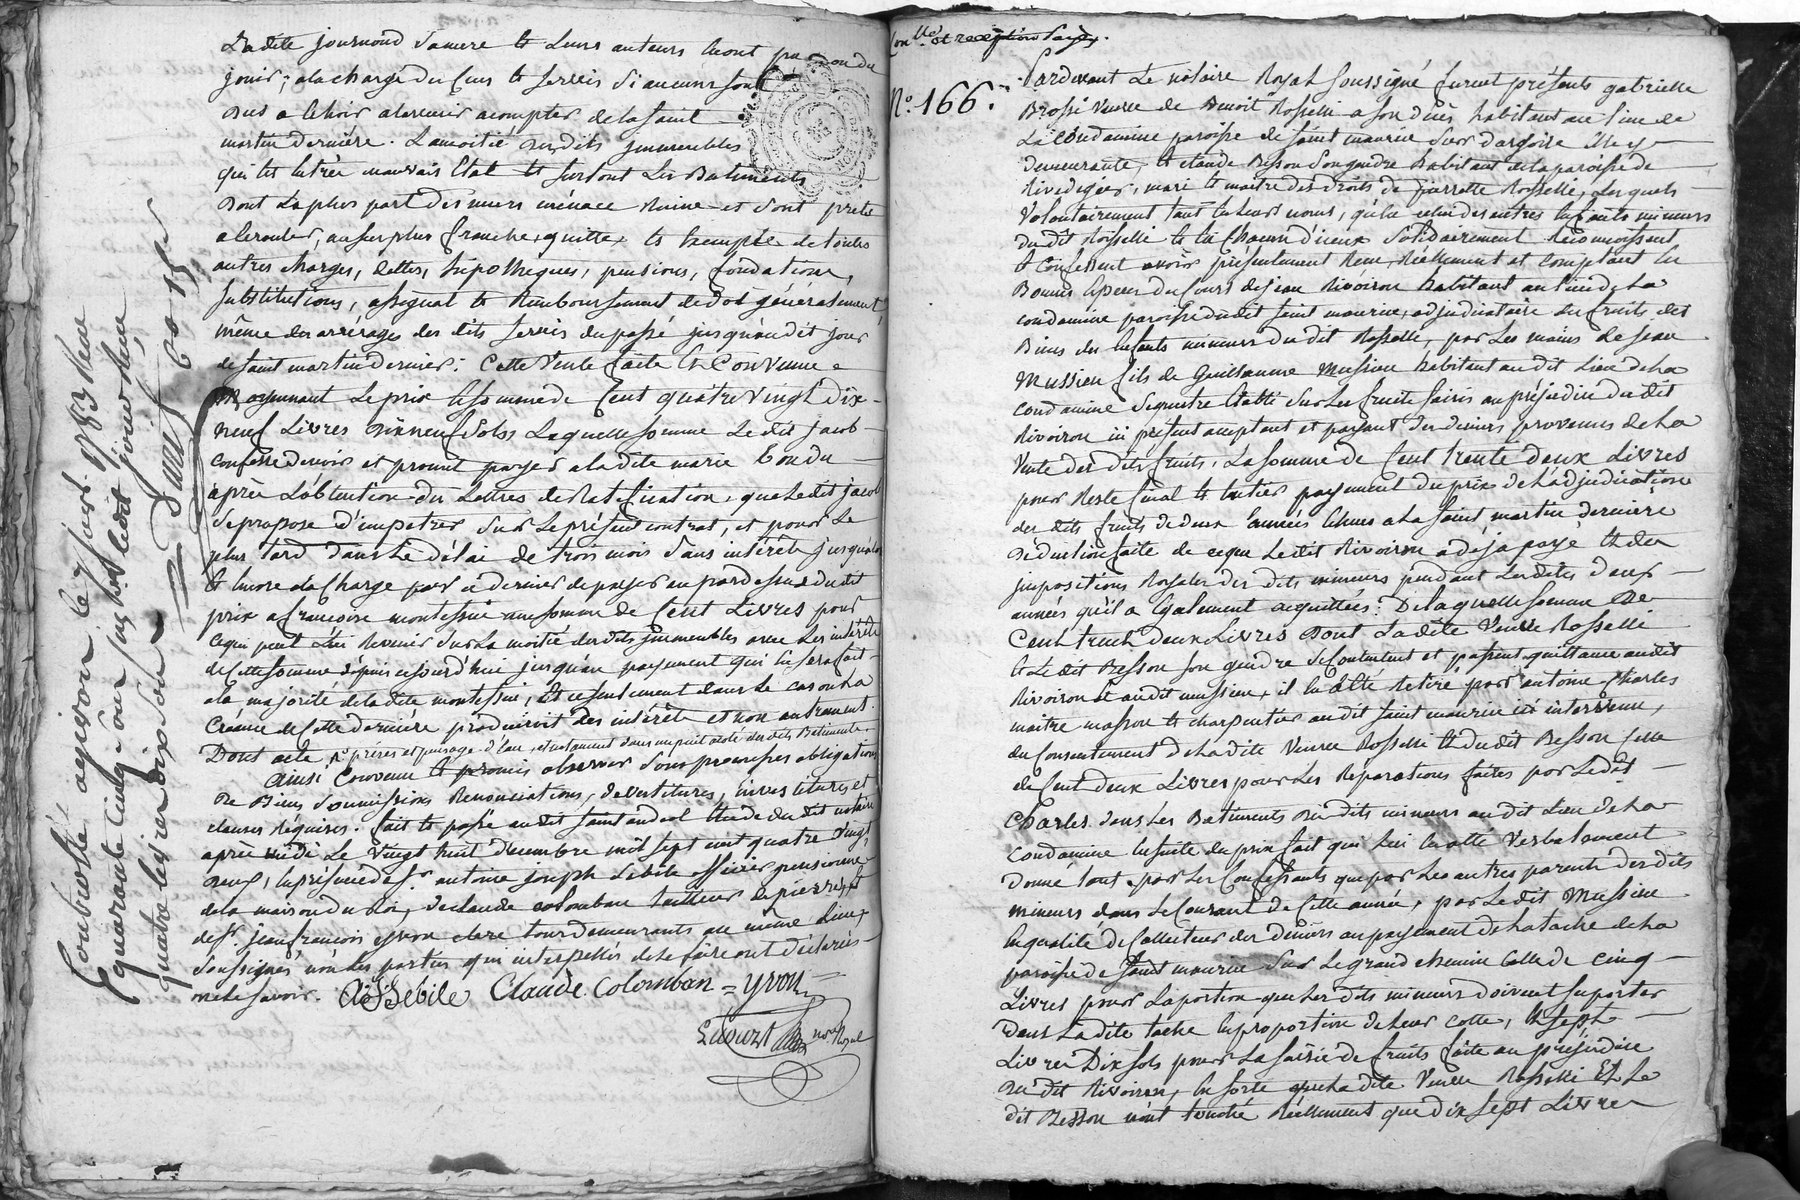 La dite journoud sa mere et leurs auteurs l'ont pu ou du
jouir; a la charge du Cens et servis si aucuns sont
dus a échoir a l'avenir a compter de la saint
martin derniere. La moitié des dits immeubles
qui est en très mauvais Etat et surtout les Batiments
dont la plus part des murs ménace Ruine et sont prets
a l'ecrouler, au surplus franche, quitte, et Exempte de toutes
autres charges, dettes, hipotheques, pensions, fondations,
substitutions, assignat et Remboursement de dot généralement
même des arrérages des dits servis du passé jusqu'au dit jour
de saint martin dernier. Cette Vente faite et Convenue
moyennant Le prix et somme de Cent quatre vingt dix
neuf Livres dix neuf sols Laquelle somme Le dit jacob
confesse devoir et promet payer a la dite marie Bondu
après L'obtention des Lettres de Ratification, que Le dit jacob
se propose d'impetrer sur Le présent contrat, et pour Le
plus tard dans Le délai de trois mois sans intérêt jusqu'alors
Et encore a la Charge par ce dernier de payer au par dessus du dit
prix a francoise montessui une somme de Cent Livres pour
ce qui peut Lui Revenir sur La moitié des dits immeubles avec Les intérêts
de Cette somme depuis aujourd'hui jusqu'au payement qui lui sera fait
a la majorité de la dite montessui, Et ce seulement dans Le cas ou La
Créance de Cette derniere produiroit des intérêts et non autrement.
Dont acte, prises et puisage d'eau, et notament dans un puit a coté des dits Batiments.
Ainsi Convenu et promis observer sous promesses obligations
de Biens soumissions Renonciations, devestitures, investitures et
clauses Réquises. fait et passé au dit saint andeol Etude du dit notaire
après midi Le vingt huit decembre mil sept cent quatre vingt
deux, en présence de Sr. antoine joseph Sebile officier pensionné
de la maison du Roi, de claude colomban tailleur de pierres, et
de Sr. jean francois yvon clerc tous demeurants au même Lieu,
soussignés non les parties qui interpellés de le faire ont déclarés
ne le savoir. AJSebile Claude Colomban = yvon
not. Royal
Controlé a givors le 7 janv. 1783 Reçu
quarante cinq
quatre Livres dix sols
60 15
Conlle. et reception payé.
N.o 166.
Pardevant Le notaire Royal soussigné furent présents gabrielle
Brossé Veuve de Benoit Rosselli a son deces habitant au Lieu de
La Condamine paroisse de saint maurice sur dargoire Elle y
demeurante, et claude Besson son gendre habitant de la paroisse de
Rivedegier, mari et maitre des droits de pierrette Rosselle, Lesquels
Volontairement tant En Leurs noms, qu'en celui des autres Enfants mineurs
du dit Rosselli Et En Chacun d'iceux Solidairement Reconnoissent
Et Confessent avoir présentement Recu, Réellement et comptant En
Bonnes Especes du Cours de jean Rivoiron habitant au Lieu de La
condamine paroisse du dit saint maurice, adjudicataire des fruits des
Biens des Enfants mineurs du dit Rosselle, par Les mains de jean
Mussieu fils de Guillaume Mussieu habitant au dit Lieu de La
condamine Sequestre Etabli sur Les fruits saisis au préjudice du dit
Rivoiron ici présent acceptant et payant des deniers provenus de La
Vente des dits fruits, La somme de Cent trente deux Livres
pour Reste final Et Entier payement du prix de L'adjudication
des dits fruits de deux années Echues a La saint martin dernière
déduction faite de ce que Le dit Rivoiron a deja payé Et des
impositions Royales des dits mineurs pendant Les dites deux
années qu'il a Egalement acquittées: De laquelle somme De
Cent trente deux Livres Dont La dite Veuve Rosselli
Et Le dit Besson son gendre se Contentent et passent quittance au dit
Rivoiron Et au dit mussieu, il En a Eté Retiré par antoine Charles
maitre masson et charpentier au dit saint maurice ici intervenu,
du Consentement de La dite Veuve Rosselli Et du dit Besson Celle
de Cent deux Livres pour Les Reparations faites par Le dit
Charles dans Les Batiments des dits mineurs au dit Lieu de La
Condamine Ensuite du prix fait qui Lui En a été Verbalement
Donné tant par Les Confessants que par Les autres parents des dits
mineurs dans Le Courant de Cette année, par Le dit Mussieu
En qualité de Collecteur des Deniers au payement de La tache de La
paroisse de saint maurice sur Le grand chemin Celle de Cinq
Livres pour La portion que Les dits mineurs doivent suporter
dans La dite tache En proportion de Leur cotte, Et sept
Livres Dix sols pour La saisie de fruits faite au préjudice
du dit Rivoiron, En sorte que La dite Veuve Rosselli Et Le
dit Besson n'ont touché Réellement que dix sept Livres